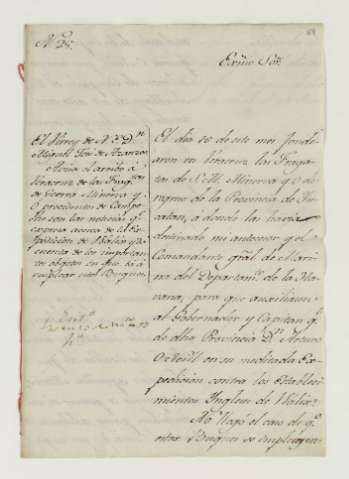 Exmo Sor.
El Virrey de N. E. Dn.
Miguel José de Azanza
Avisa el arribo a
Veracruz de las Frag.
de Guerra Minerva y
procedentes de Campe
che con las noticias qe.
acerca de la Ex
pedicion de Waliz y da
cuenta de los importan
tes objetos en qe. ha de
emplear estos Buques.
El dia 18 de este mes fondea
ron en Veracruz las Fraga
tas de S. M. Minerva y O
de la Provincia de Yu
catan, a donde las havia
destinado mi antecesor y el
Comandante gral. de Mari
na del Departamto. de la Ha
vana, para que auxiliasen
al Gobernador y Capitan gl.
de dha Provincia Dn. Arturo
O'Neill en su meditada Ex
pedicion contra los Estableci
mientos Ingleses de Waliz.
No llegó el caso de qe.
estos Buques se empleasen